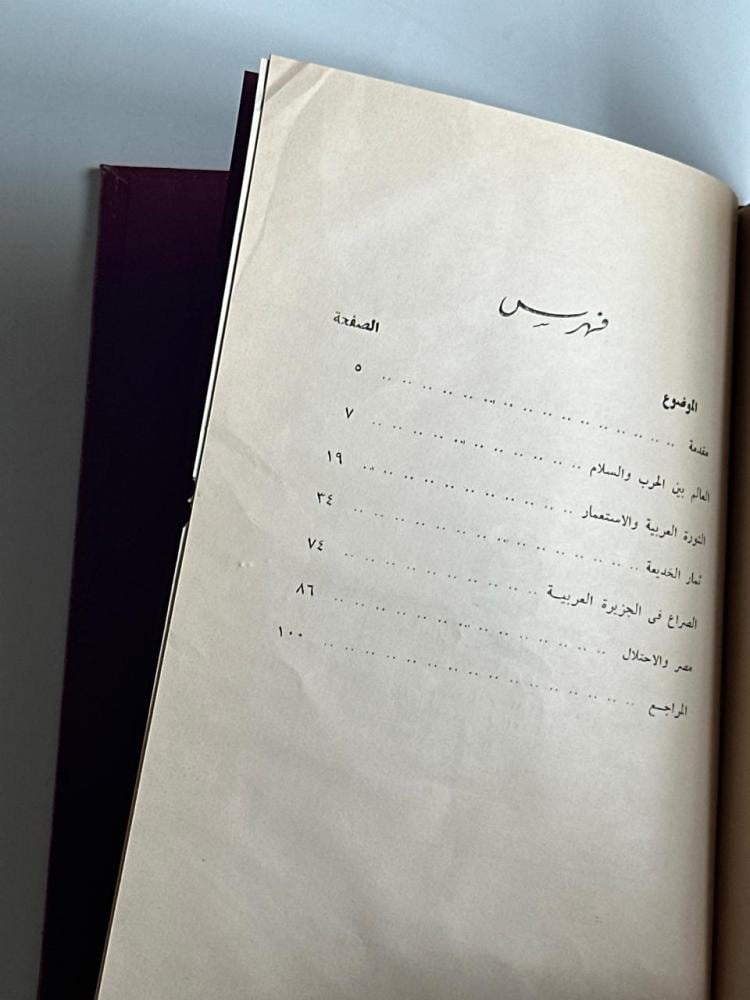 فهرس
الموضوع الصفحة
مقدمة .. .. .. .. .. .. .. .. .. .. .. .. .. .. .. ٥
العالم بين الحرب والسلام .. .. .. .. .. .. .. .. .. .. .. ٧
الثورة العربية والاستعمار .. .. .. .. .. .. .. .. .. .. .. ١٩
ثمار الخديعة .. .. .. .. .. .. .. .. .. .. .. .. .. .. ٣٤
الصراع فى الجزيرة العربيــة .. .. .. .. .. .. .. .. .. .. ٧٤
مصر والاحتلال .. .. .. .. .. .. .. .. .. .. .. .. .. .. ٨٦
المراجـع .. .. .. .. .. .. .. .. .. .. .. .. .. .. .. .. ١٠٠